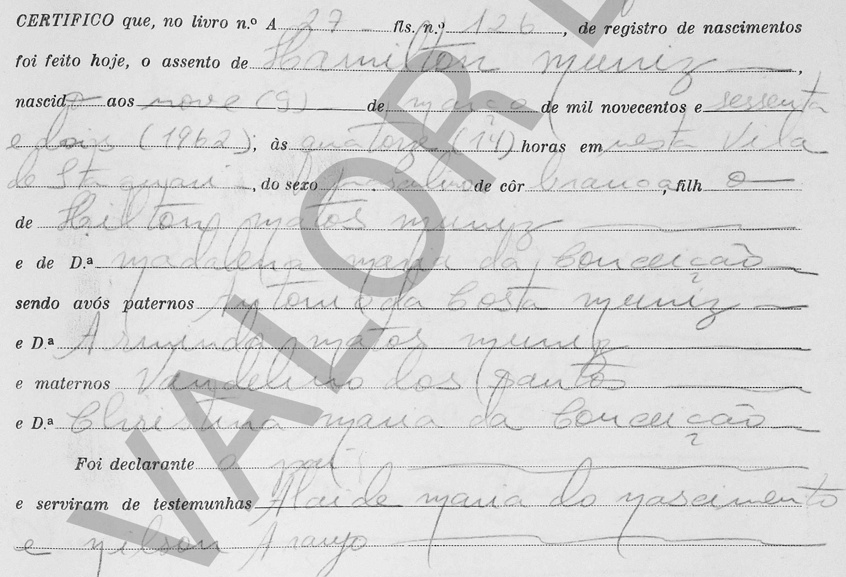 CERTIFICO que, no livro n.º A 27 fls. n.º 126, de registro de nascimentos
foi feito hoje, o assento de Hamilton muniz,
nascido aos nove (9) de março de mil novecentos e sessenta
e dois (1962); às quatorze (14) horas em nesta Vila
de, do sexo masculino de côr branca, filho
de Hilton matos muniz
e de D.ª madalena maria da Conceição
sendo avós paternos Antonio da Costa muniz
e D.ª Arminda matos muniz
e maternos Vandelino dos Santos
e D.ª Christina maria da Conceição
Foi declarante o pai
e serviram de testemunhas Alaide maria do nascimento
e nilson Araujo
VALOR